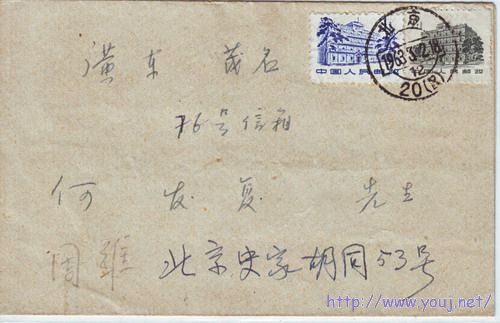 广东 茂名
76号信箱
何 发 复 先生
周
北京史家胡同53号
中国人民邮政
人民邮政
北京
1963.3.2.18
12
20(支)
http://www.youj.net/